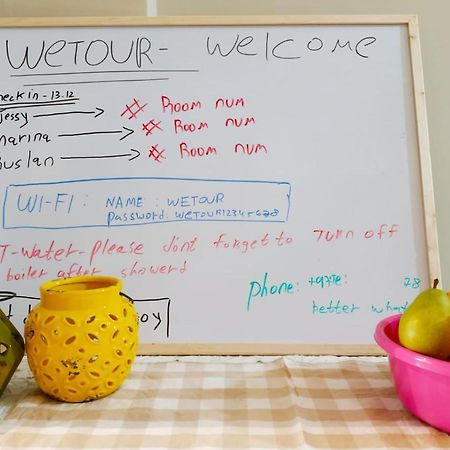 WETOUR - Welcome
heck in - 13.12
jessy → # Room num
arina → # Room num
uslan → # Room num
WI-FI: NAME: WETOUR
password: WETOUR12345678
T-Water-please dont forget to Turn off
boiler after showerd
phone: 78
better what
oy